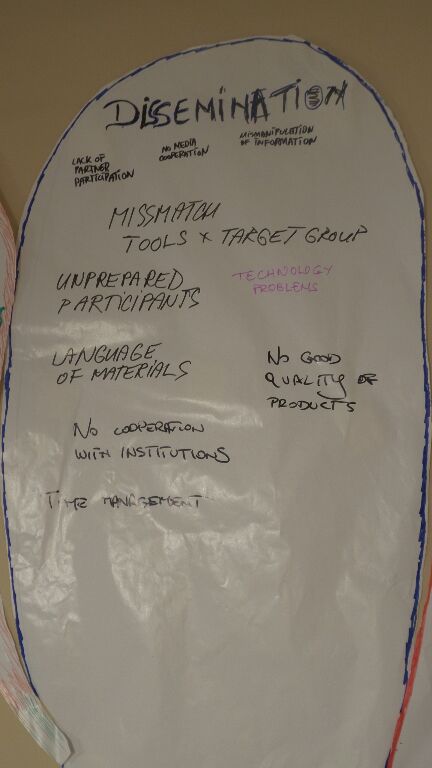 DISSEMINATION
LACK OF
PARTNER
PARTICIPATION
NO MEDIA
COOPERATION
MISMANIPULATION
OF INFORMATION
MISSMATCH
TOOLS x TARGET GROUP
UNPREPARED
PARTICIPANTS
TECHNOLOGY
PROBLEMS
LANGUAGE
OF MATERIALS
NO GOOD
QUALITY OF
PRODUCTS
NO COOPERATION
WITH INSTITUTIONS
TIME MANAGEMENT